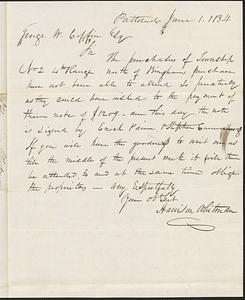 June 1. 1834
George W. Coffin Esq
Sir
The purchasers of Township
No 2 4th Range north of Binghams purchase
have not been able to attend so punctually
as they could have wished to the payment of
their note of $1209. due this day. the note
is signed by Enoch Paine & Stephen
If you will have the goodness to wait on us
till the middle of the present week it will then
be attended to and at the same time oblige
the proprietors — Very Respectfully
Your Ob Sert
Harrison Whitman